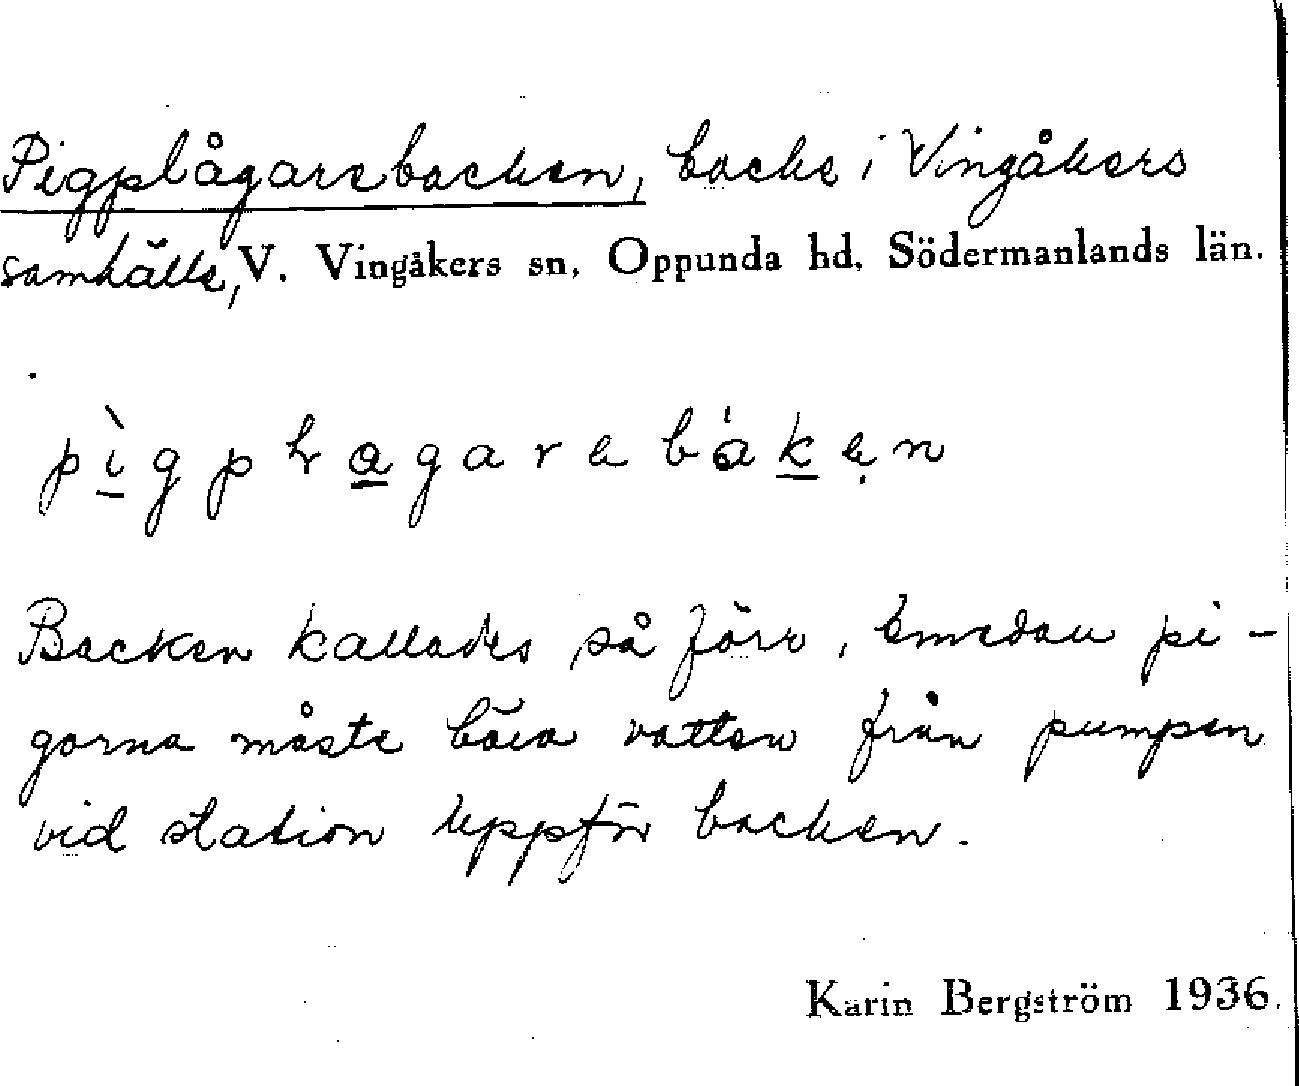 Pigplågarebacken, backe i Vingåkers
samhälle, V. Vingåkers sn, Oppunda hd, Södermanlands län.
pìgpłagarebákẹn
Backen kallades så förr, emedan pi-
gorna måste bära vatten från pumpen
vid station uppför backen.
Karin Bergström 1936.